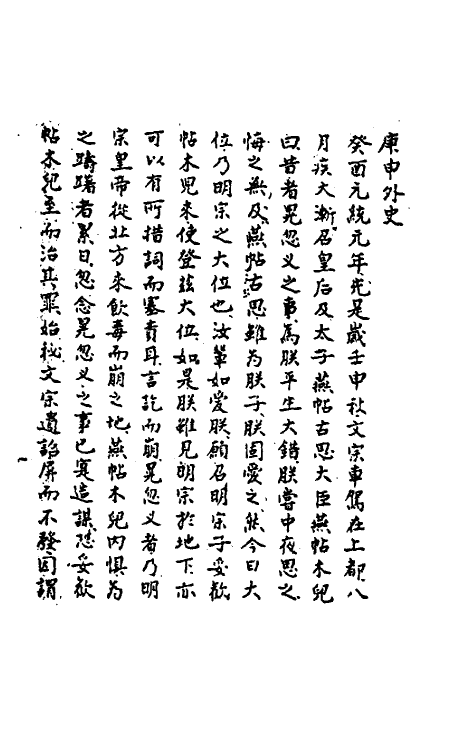 庚申外史
癸酉元統元年先是歲壬申秋文宗車駕在上都八
月疾大漸召皇后及太子燕帖古思大臣燕帖木兒
曰昔者晃忽义之事爲朕平生大錯朕嘗中夜思之
悔之無及燕帖古思雖为朕子朕固愛之然今日大
位乃明宗之大位也汝輩如愛朕願召明宗子妥歡
帖木兒来使登兹大位如是朕雖見明宗於地下亦
可以有所措詞而塞責耳言訖而崩晃忽义者乃明
宗皇帝從北方来飲毒而崩之地燕帖木兒内惧为
之躊躇者累日忽念晃忽义之事已寔造謀恐妥歡
帖木兒至而治其罪姑秘文宗遺詔屏而不發因謂